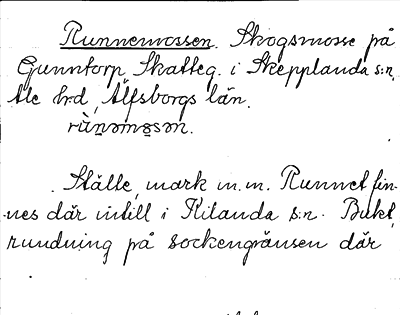 Runnemossen. Skogsmosse på
Gunntorp, Skatteg. i Skepplanda s:n,
Ale hrd, Älfsborgs län.
rùnəmo̱sən.
Ställe, mark m.m. Runnet fin-
nes där intill i Kilanda s:n. Bukt,
rundning på sockengränsen där